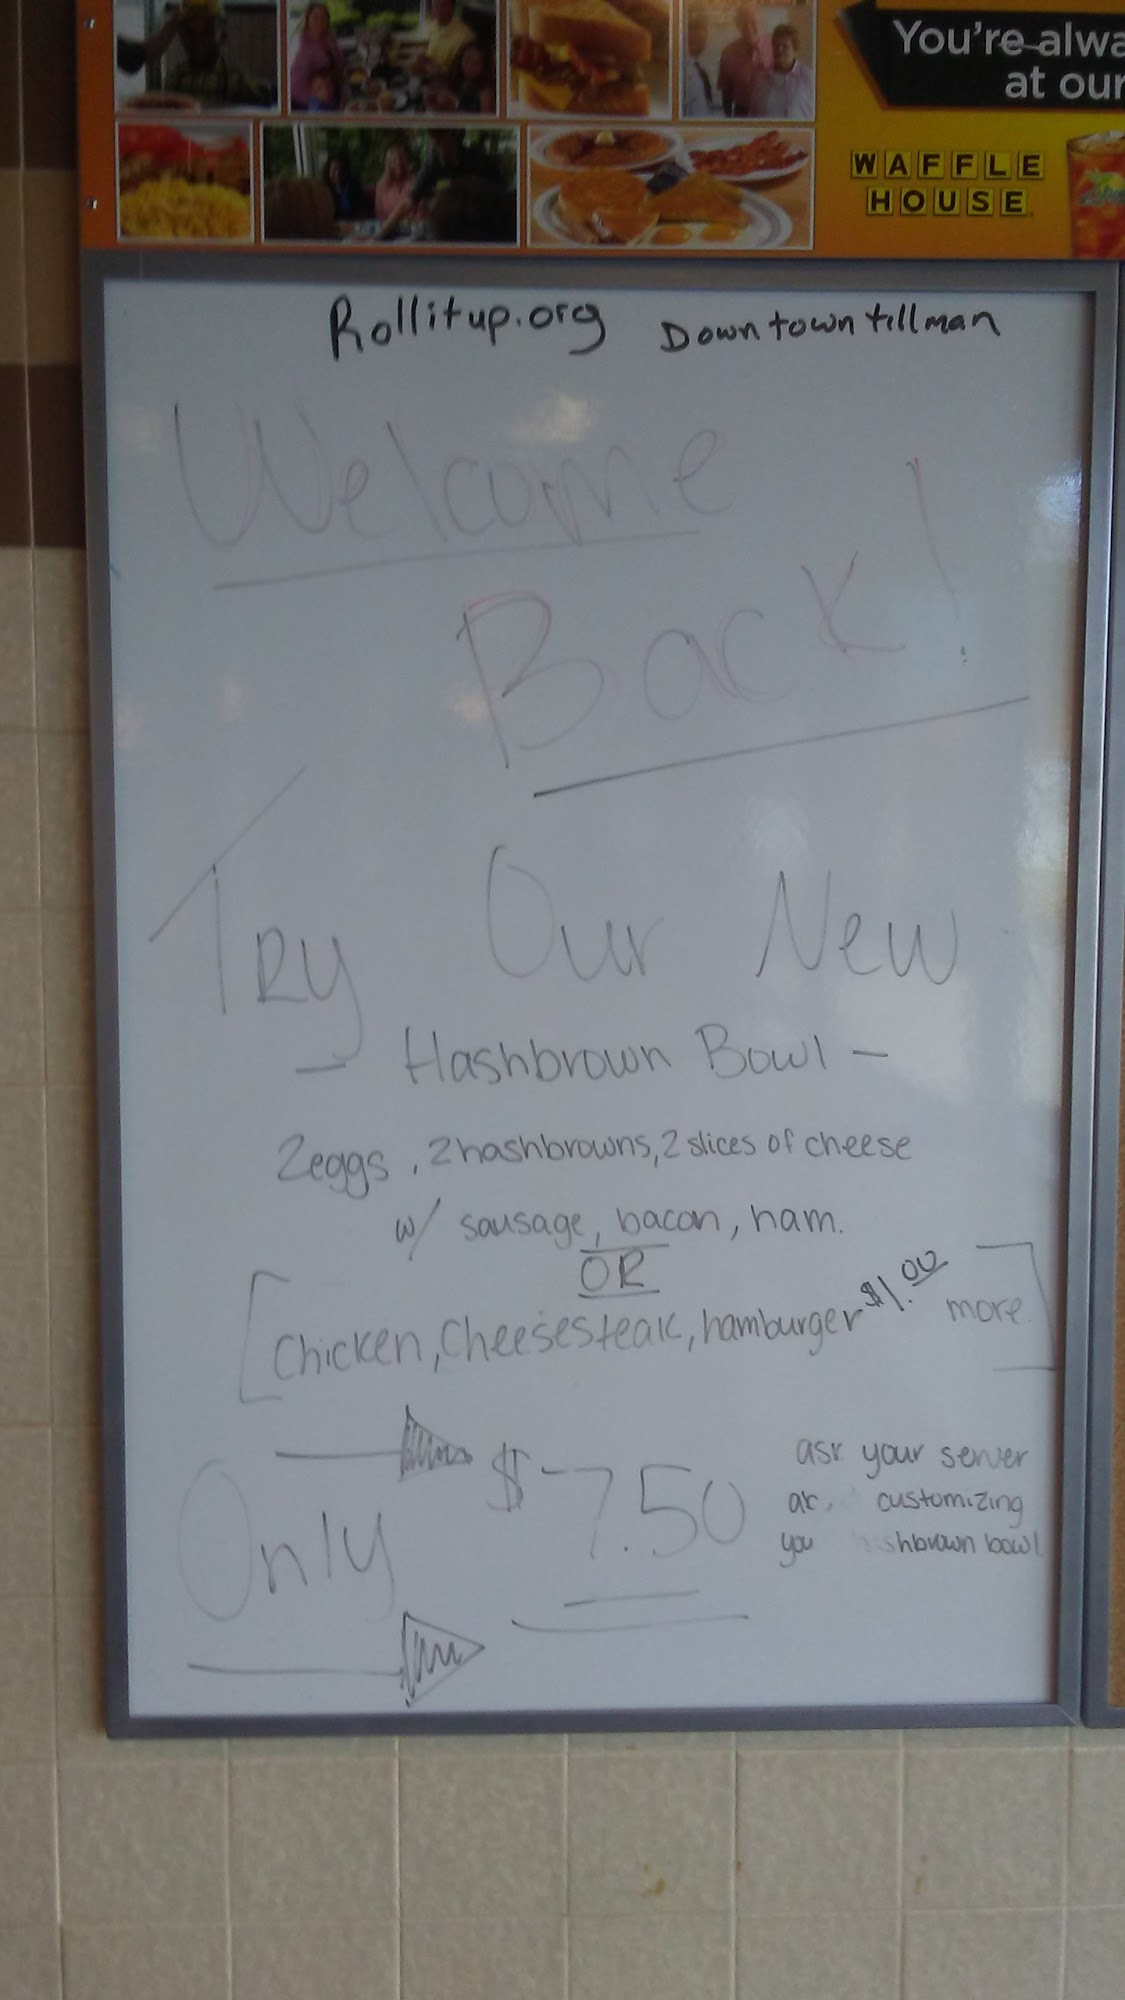 You're alwa
at our
WAFFLE
HOUSE
Rollitup.org Downtowntillman
Welcome
Back!
Try Our New
- Hashbrown Bowl -
2eggs, 2hashbrowns, 2 slices of cheese
w/ sausage, bacon, ham.
OR
[Chicken, Cheesesteak, hamburger $1.00 more]
Only $7.50
ask your server
customizing
you shbrown bowl